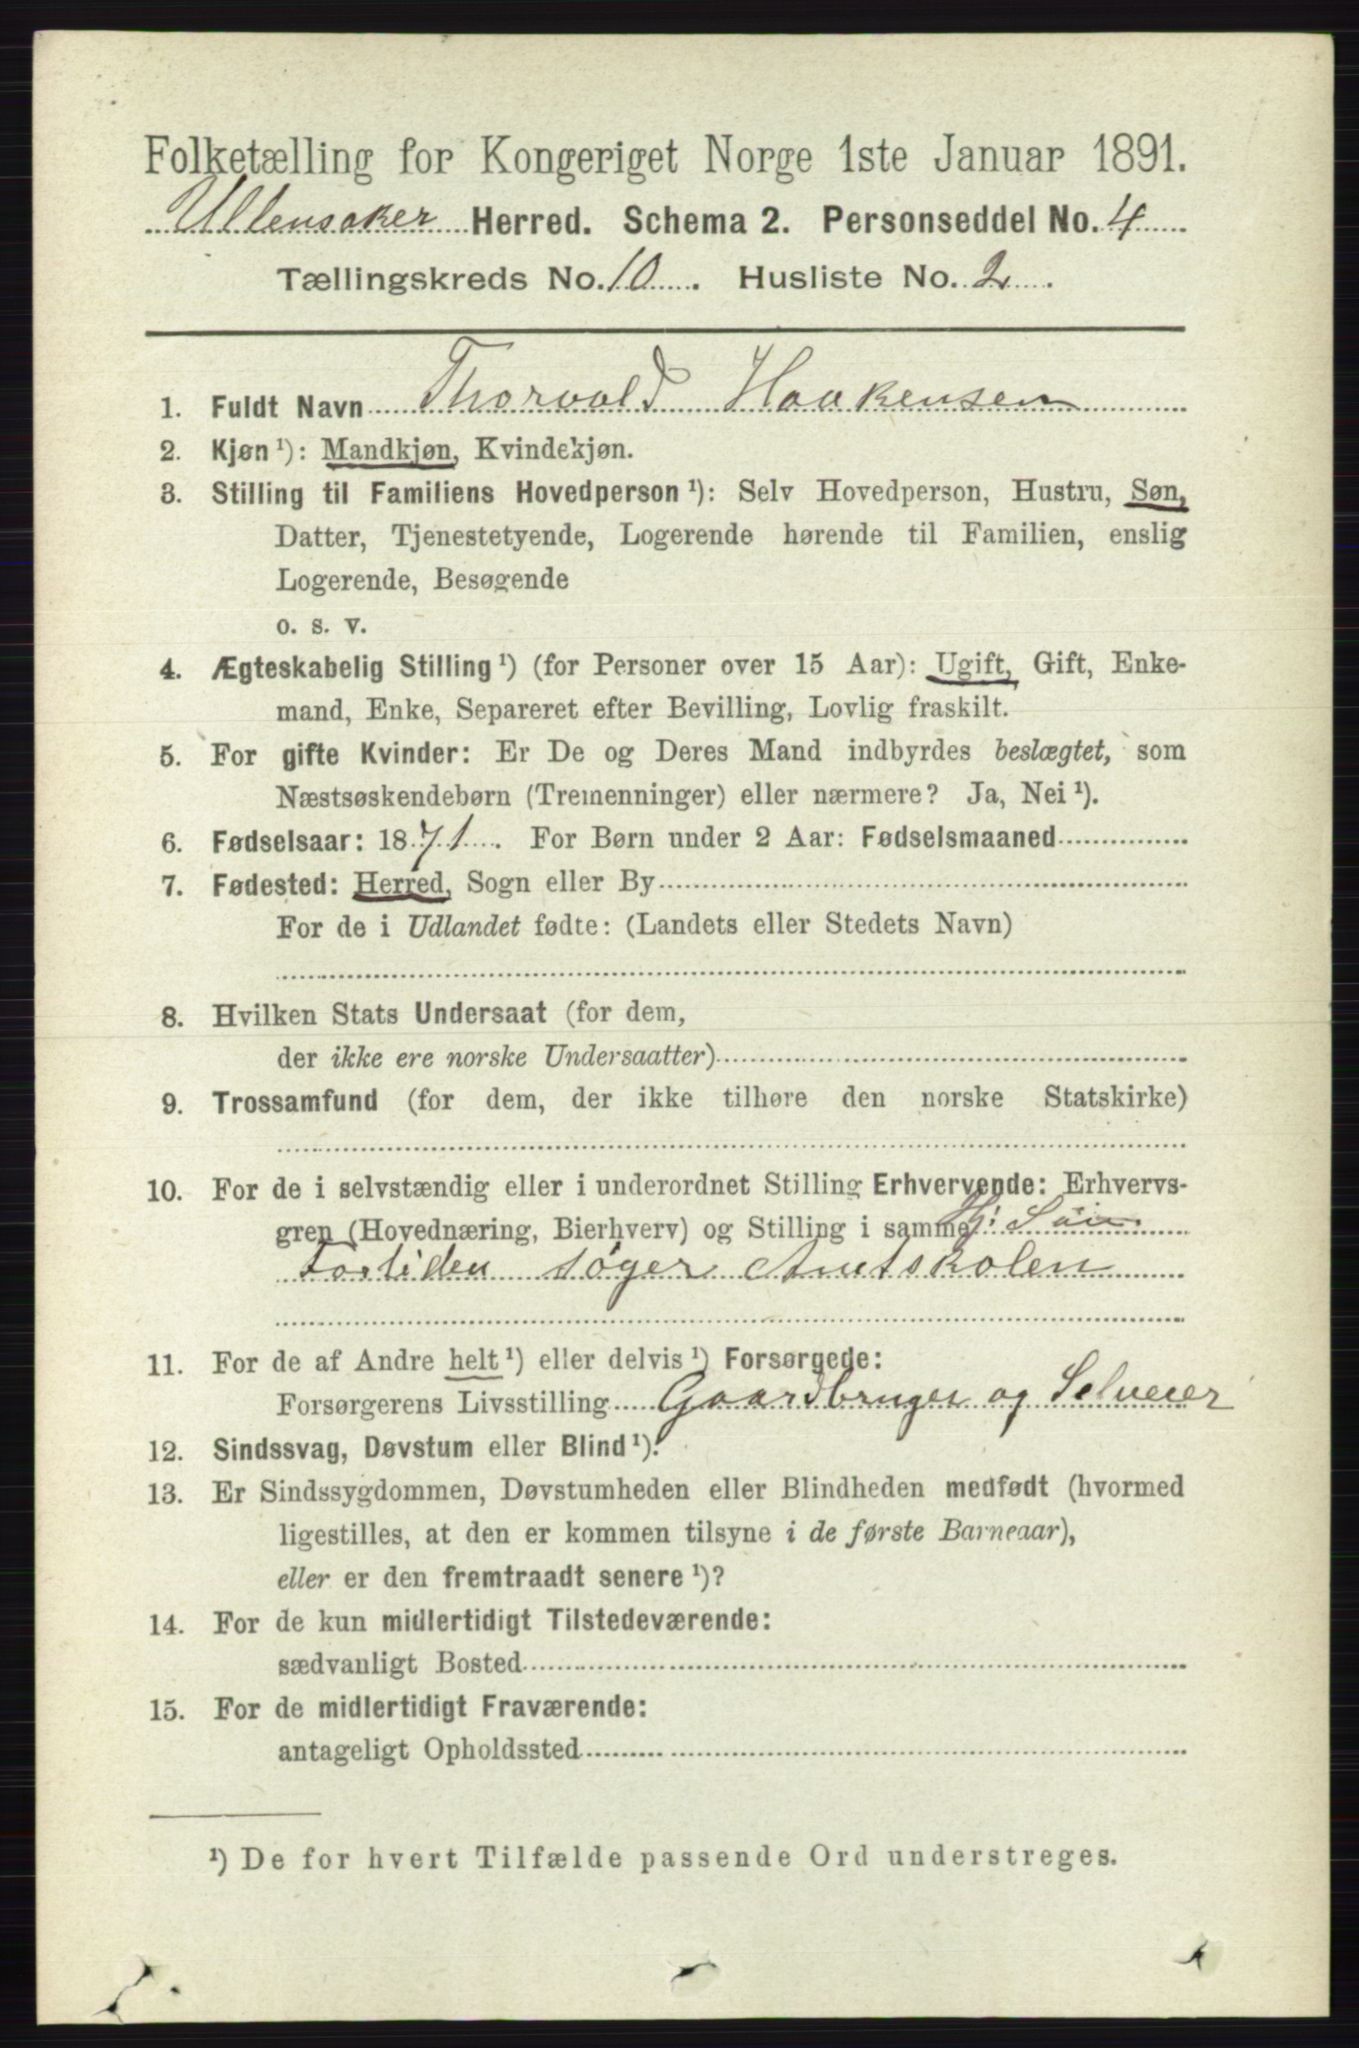 Folketælling for Kongeriget Norge 1ste Januar 1891.
Ullensaker Herred. Schema 2. Personseddel No. 4
Tællingskreds No. 10. Husliste No. 2.
1. Fuldt Navn Thorvald Haakensen
2. Kjøn ¹): Mandkjøn, Kvindekjøn.
3. Stilling til Familiens Hovedperson ¹): Selv Hovedperson, Hustru, Søn,
Datter, Tjenestetyende, Logerende hørende til Familien, enslig
Logerende, Besøgende
o. s. v.
4. Ægteskabelig Stilling ¹) (for Personer over 15 Aar): Ugift, Gift, Enke-
mand, Enke, Separeret efter Bevilling, Lovlig fraskilt.
5. For gifte Kvinder: Er De og Deres Mand indbyrdes beslægtet, som
Næstsøskendebørn (Tremenninger) eller nærmere? Ja, Nei ¹).
6. Fødselsaar: 1871. For Børn under 2 Aar: Fødselsmaaned
7. Fødested: Herred, Sogn eller By
For de i Udlandet fødte: (Landets eller Stedets Navn)
8. Hvilken Stats Undersaat (for dem,
der ikke ere norske Undersaatter)
9. Trossamfund (for dem, der ikke tilhøre den norske Statskirke)
10. For de i selvstændig eller i underordnet Stilling Erhvervende: Erhvervs-
gren (Hovednæring, Bierhverv) og Stilling i samme
Fortiden søger Amtskolen
11. For de af Andre helt ¹) eller delvis ¹) Forsørgede:
Forsørgerens Livsstilling Gaardbruger og Selveier
12. Sindssvag, Døvstum eller Blind ¹).
13. Er Sindssygdommen, Døvstumheden eller Blindheden medfødt (hvormed
ligestilles, at den er kommen tilsyne i de første Barneaar),
eller er den fremtraadt senere ¹)?
14. For de kun midlertidigt Tilstedeværende:
sædvanligt Bosted
15. For de midlertidigt Fraværende:
antageligt Opholdssted
¹) De for hvert Tilfælde passende Ord understreges.